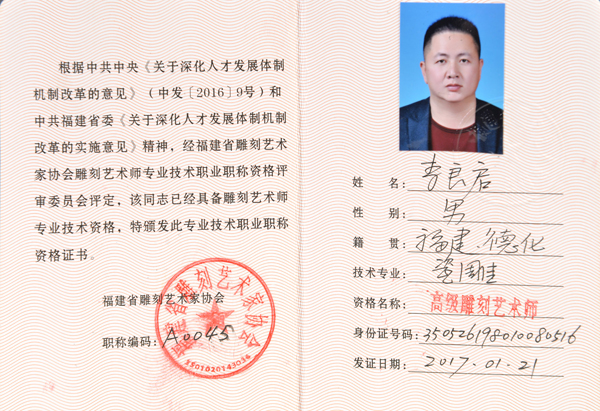 根据中共中央《关于深化人才发展体制
机制改革的意见》（中发［2016］9号）和
中共福建省委《关于深化人才发展体制机制
改革的实施意见》精神，经福建省雕刻艺术
家协会雕刻艺术师专业技术职业职称资格评
审委员会评定，该同志已经具备雕刻艺术师
专业技术资格，特颁发此专业技术职业职称
资格证书。
福建省雕刻艺术家协会
职称编码：A0045
福建省雕刻艺术家协会
3501020143036
姓名：李良启
性别：男
籍贯：福建、德化
技术专业：瓷雕
资格名称：高级雕刻艺术师
身份证号码：350526198010080516
发证日期：2017.01.21